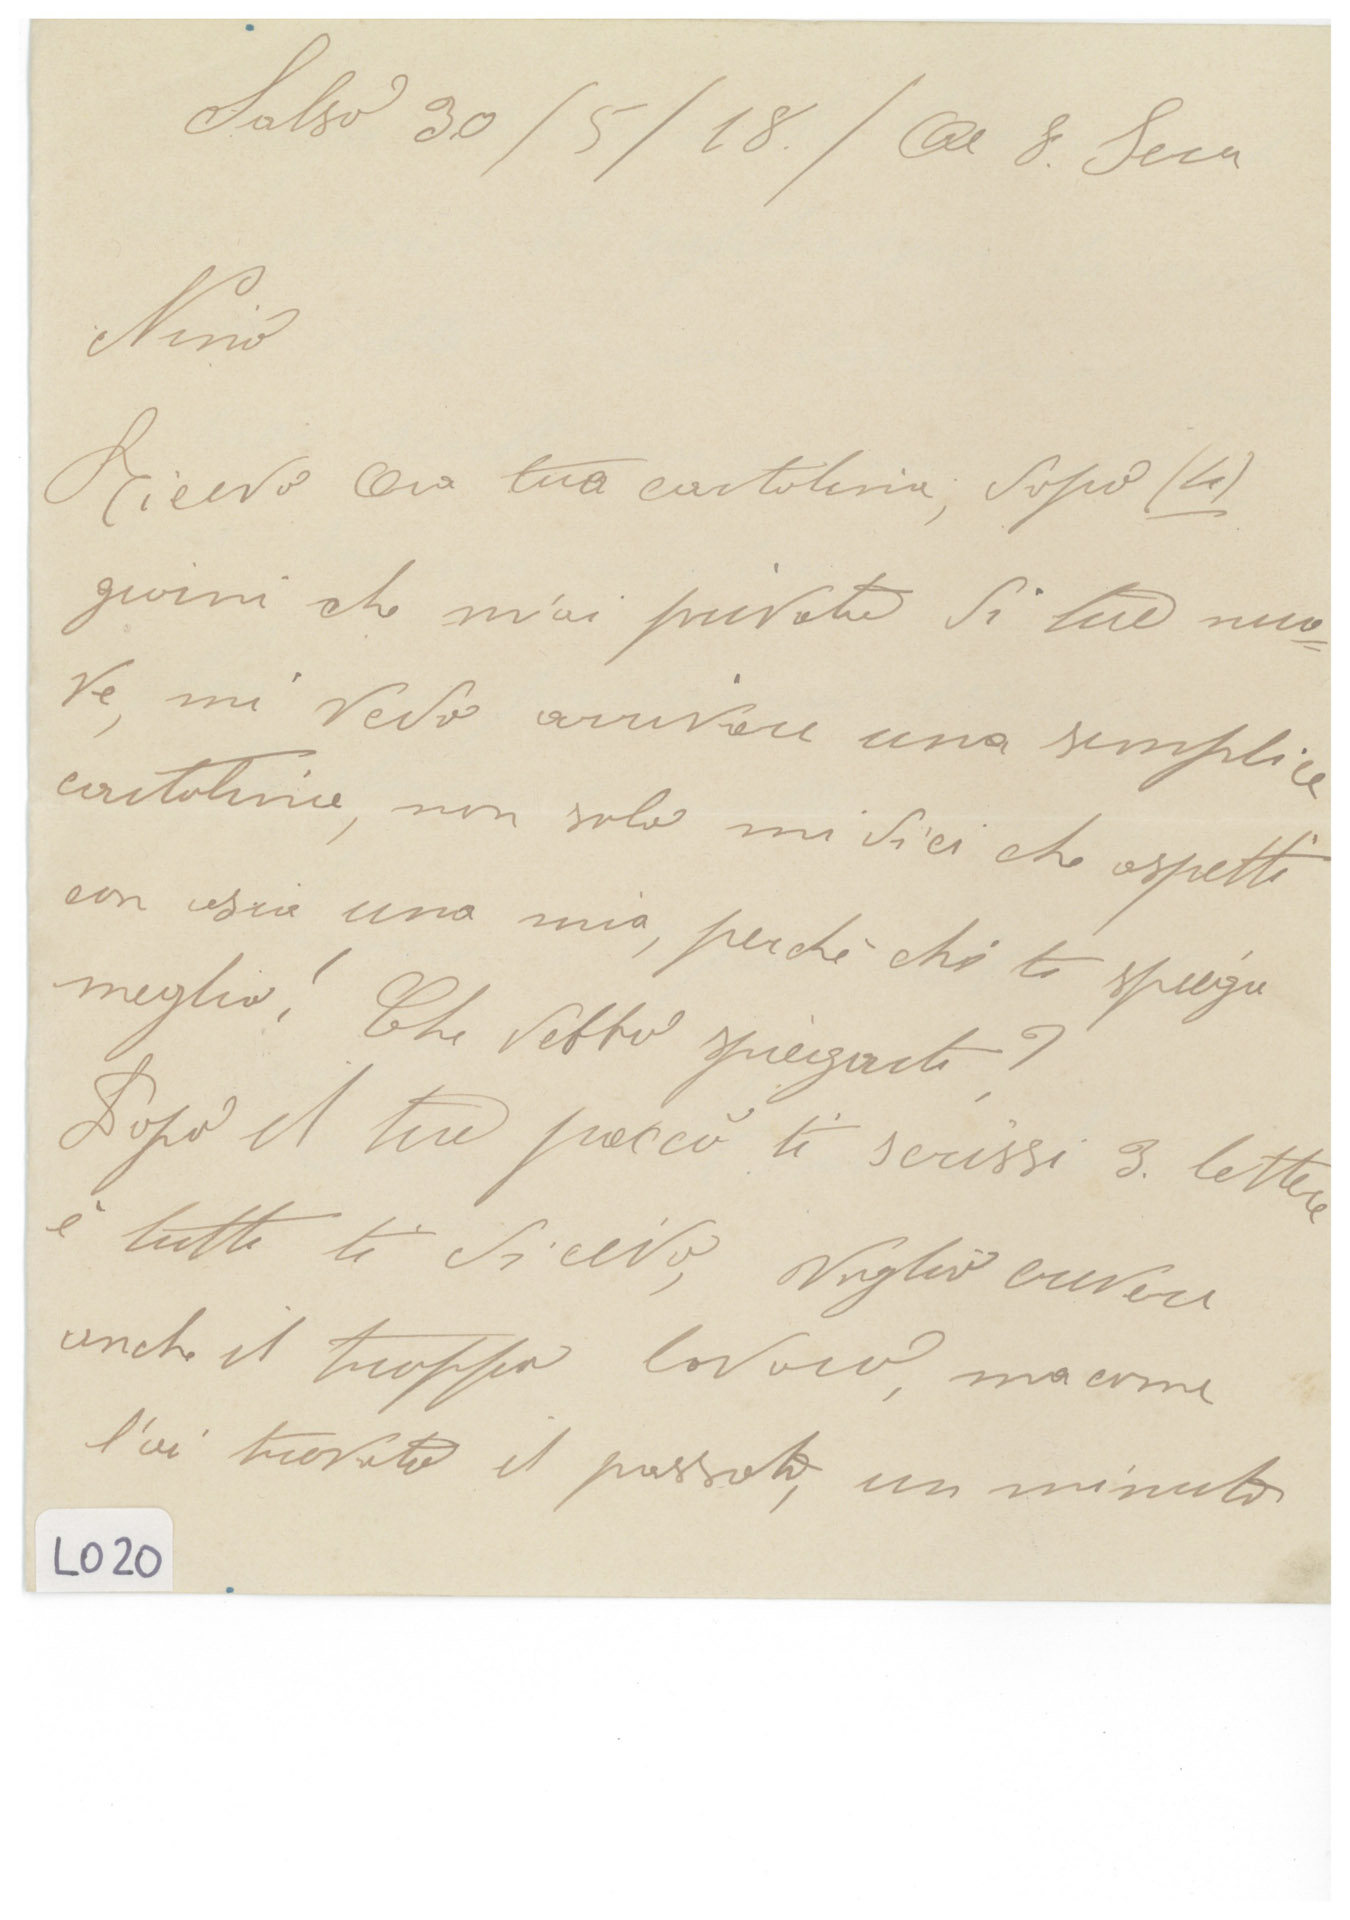 Salso 30/5/18./ Ore 8. Sera
Nino
Ricevo Ora tua cartolina, dopo
giorni che m'ai privata di tue nuo=
ve, mi vedo arrivare una semplice
cartolina, non solo mi dici che aspetti
con una mia, perchè chi ti spiega
meglio! Che debbo spiegarti?
Dopo il tuo pacco ti scrissi 3. lettere
e tutti ti dicevo, voglio
anche il troppo lavoro, ma come
l'ai trovato il passato, un minuto
LO20